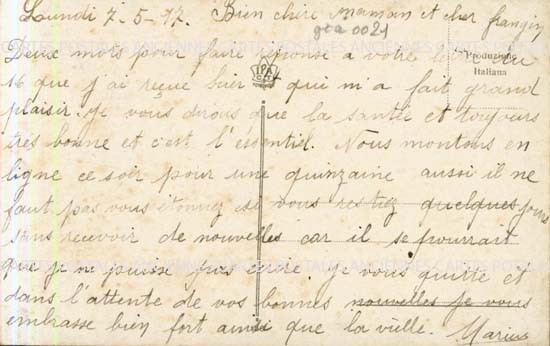 Lundi 7-5-17. Bien chère maman et cher frangin
gta 0021
Deux mots pour faire réponse a votre lettre du
Produzione
Italiana
16 que j'ai reçue hier et qui m'a fait grand
IPA
CT
plaisir. Je vous dirais que la santée et toujours
très bonne et c'est l'essentiel. Nous montons en
ligne ce soir pour une quinzaine aussi il ne
faut pas vous étonnez si vous restiez quelques jours
sans recevoir de nouvelles car il se pourrait
que je ne puisse pas écrire je vous quitte et
dans l'attente de vos bonnes nouvelles je vous
embrasse bien fort ainsi que la vieille. Marius